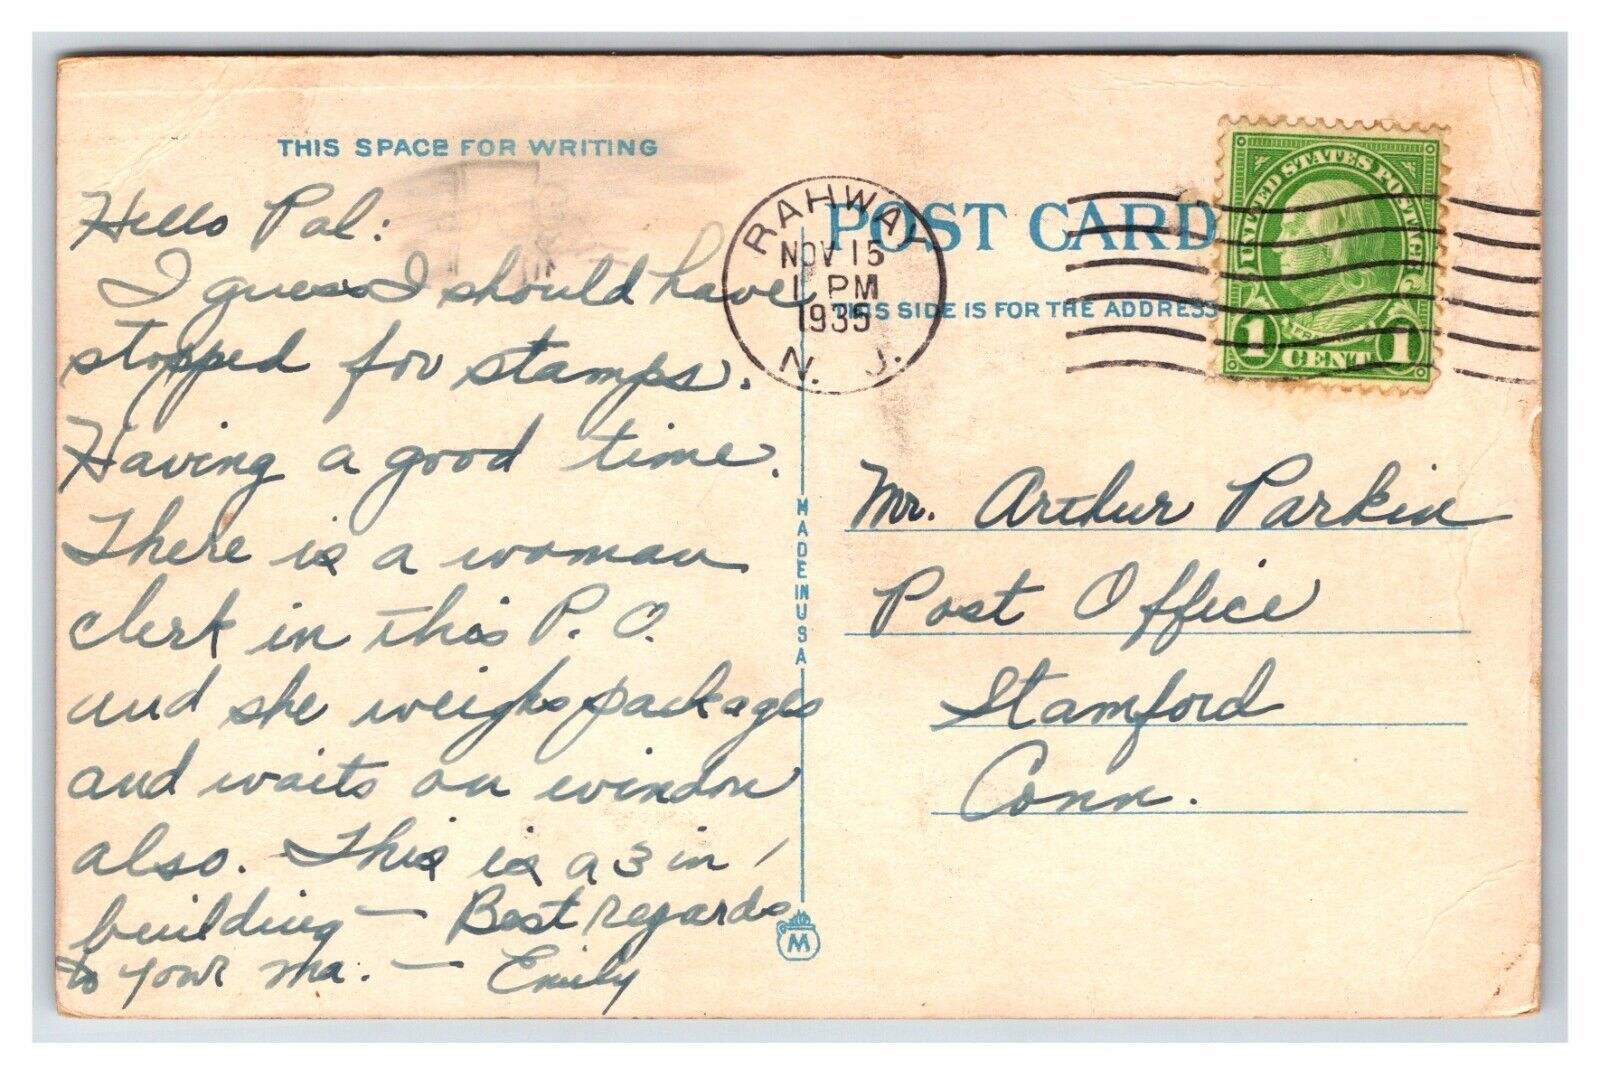 THIS SPACE FOR WRITING
Hello Pal:
I guess I should have
stopped for stamps.
Having a good time.
There is a woman
clerk in this P. O.
and she weighs packages
and waits on window
also. This is a 3 in 1
building — Best regards
to your ma. — Emily
MADE IN USA
M
RAHWAY
NOV 15
1 PM
1935
N. J.
POST CARD
THIS SIDE IS FOR THE ADDRESS
UNITED STATES POSTAGE
1 CENT 1
Mr. Arthur Parkin
Post Office
Stamford
Conn.